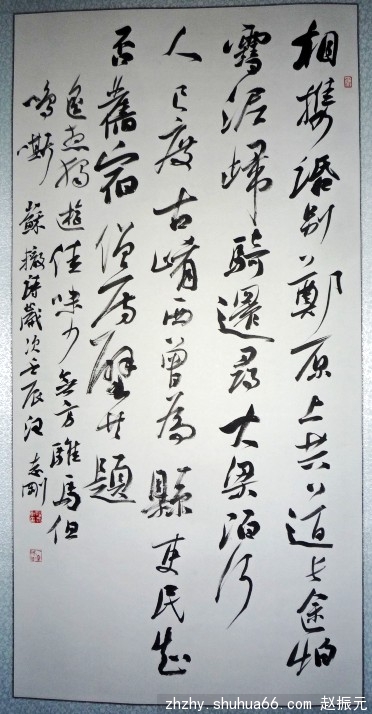 相攜話別鄭原上共道長途怕
雪泥歸騎還尋大梁陌行
人已度古崤西曾為縣吏民知
否舊宿僧房壁共題
遙想獨遊佳味少無方騅馬但
鳴嘶 蘇轍詩歲次壬辰 志剛
zhzhy.shuhua66.com 赵振元